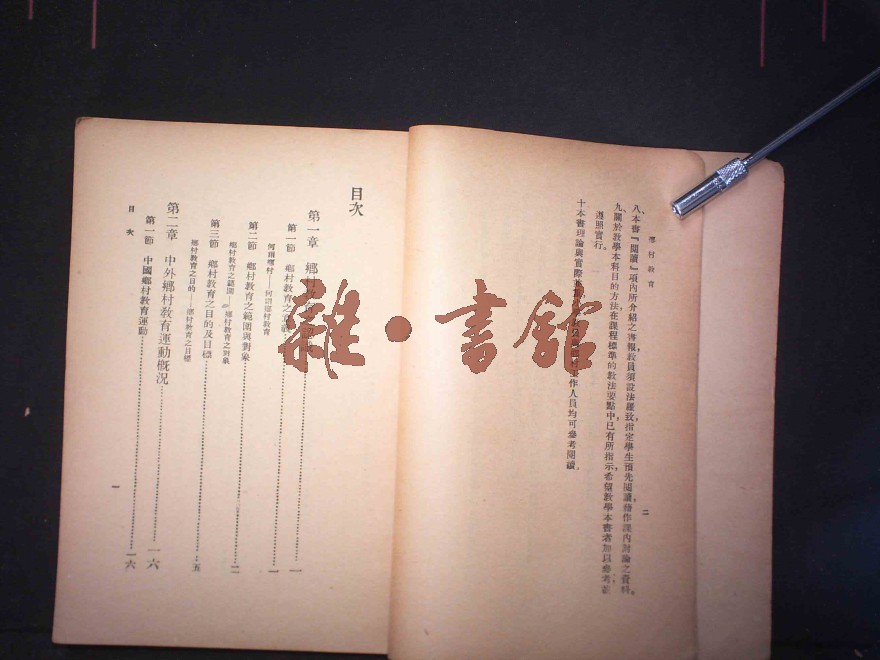 鄉村教育
二
八、本書『閱讀』項內所介紹之書報，教員須設法羅致，指定學生預先閱讀，藉作課內討論之資料。
九、關於教學本科目的方法，在課程標準的教法要點中，已有所指示，希望教學本書者加以參考，並
遵照實行。
十、本書理論與實際並 作人員均可參考閱讀。
雜•書館
目次
第一章 鄉村教育 一
第一節 鄉村教育之 一
何謂鄉村——何謂鄉村教育
第二節 鄉村教育之範圍與對象 二
鄉村教育之範圍——鄉村教育之對象
第三節 鄉村教育之目的及目標 五
鄉村教育之目的——鄉村教育之目標
第二章 中外鄉村教育運動概況 一六
第一節 中國鄉村教育運動 一六
目次
一